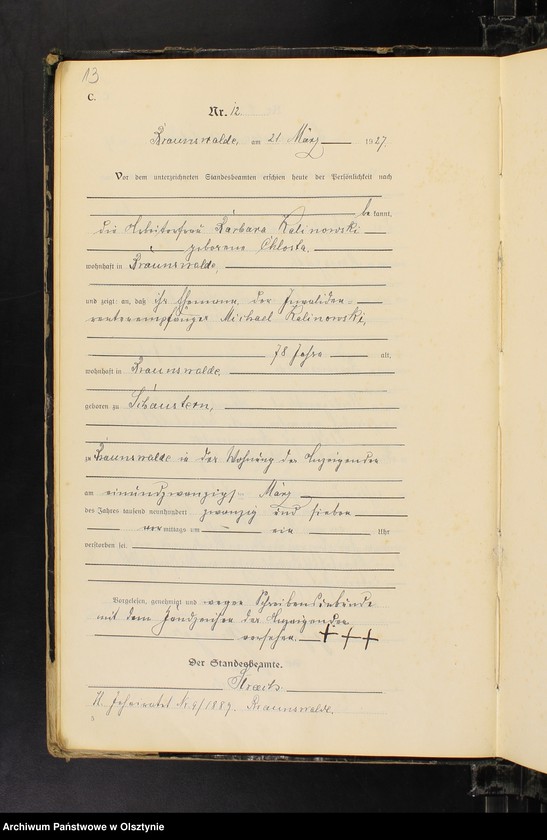 13
C.
Nr. 12
Braunswalde, am 21 März 1927.
Vor dem unterzeichneten Standesbeamten erschien heute der Persönlichkeit nach
be kannt,
die Arbeiterfrau Barbara Kalinowski
geborene Chlosta,
wohnhaft in Braunswalde,
und zeigte an, daß ihr Ehemann, der Invaliden-
rentenempfänger Michael Kalinowski,
78 Jahre alt,
wohnhaft in Braunswalde
geboren zu Schaustern,
zu Braunswalde in der Wohnung der Anzeigenden
am einundzwanzigst März
des Jahres tausend neunhundert zwanzig und sieben
vor mittags um ein Uhr
verstorben sei.
Vorgelesen, genehmigt und wegen Schreibensunkunde
mit dem Handzeichen der Anzeigenden
versehen. +++
Der Standesbeamte.
H. Nr. 9/1889. Braunswalde.
5
Archiwum Państwowe w Olsztynie